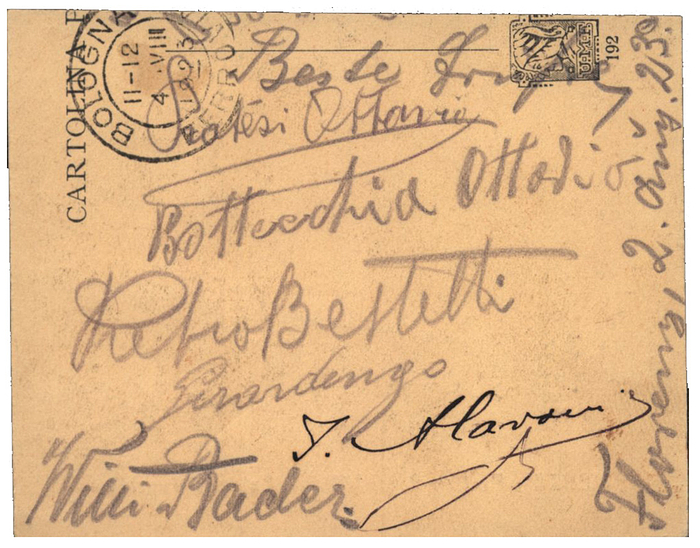 CARTOLINA P
BOLOGNA
11-12
4 VIII
1923
FERRO
192
Beste
Pratesi Ottavio
Bottecchia Ottavio
Pietro Bestetti
Girardengo
Willi Bader.
Florenz, 2. Aug. 23.